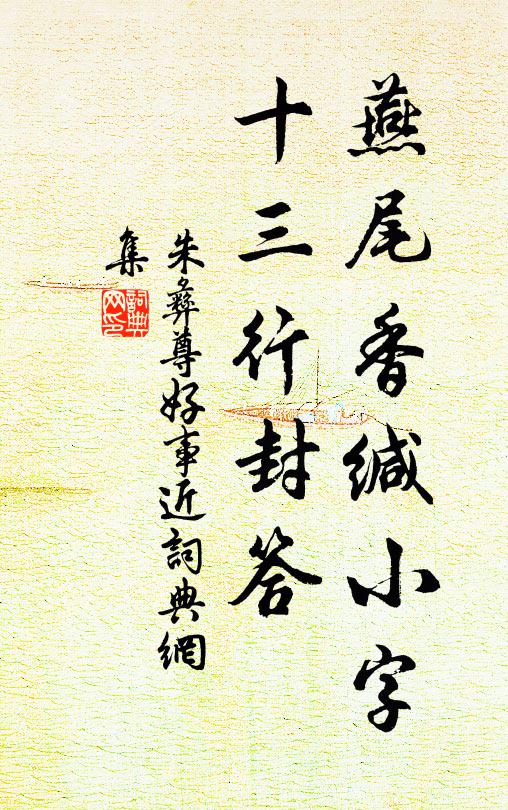 燕尾香緘小字
十三行封答
朱彝尊好事近詞典網
集
詞典
网印